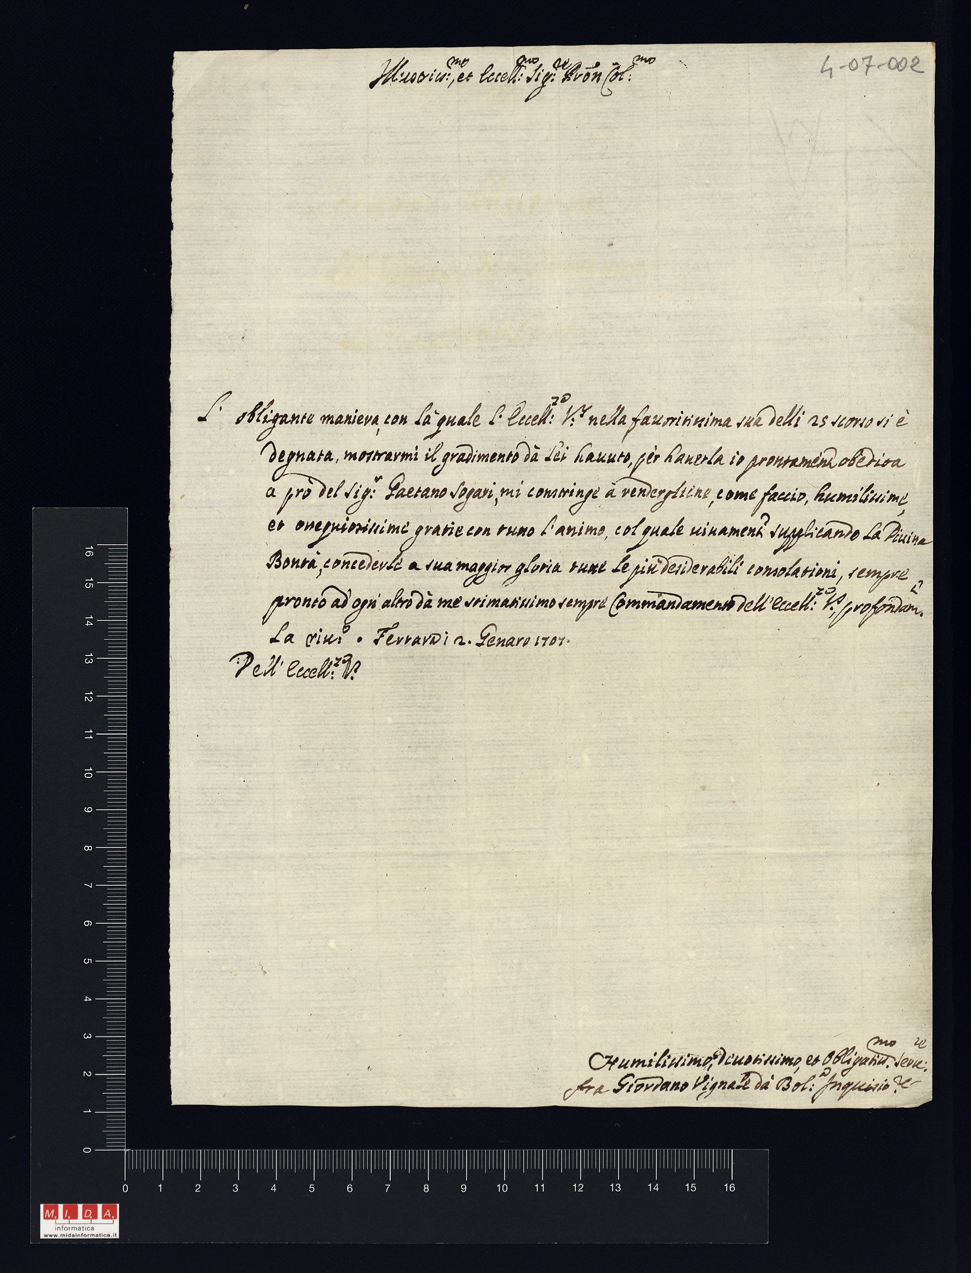 4-07-002
Illustriss:mo, et Eccell:mo Sig:re Pron Col:mo
L' obligante maniera, con la quale l' Eccell:za V.ra nella favoritissima sua delli 25 scorso si è
degnata, mostrarmi il gradimento dà Lei hauuto, pèr hauerla io prontamente obedita
a prò del Sig.r Gaetano Sogari, mi constringe à rendergliene, come faccio, humilissime,
et ossequiosissime gratie con tutto l' animo, col quale viuamente supplicando La Diuina
Bontà, concederle a sua maggior gloria tutte le più desiderabili consolationi, sempre
pronto ad ogni altro dà me stimatissimo sempre Commandamento dell' Eccell:za V.a, profondam.te
La riu:o. Ferrara li 2. Genaro 1707.
Dell' Eccell:za V.a
Humilissimo, Deuotissimo, et Obligatiss:mo Seru:re
fra Giordano Vignale dà Bol:a Inquisit:re
16
15
14
13
12
11
10
9
8
7
6
5
4
3
2
1
0
0 1 2 3 4 5 6 7 8 9 10 11 12 13 14 15 16
M. I. D. A.
informatica
www.midainformatica.it